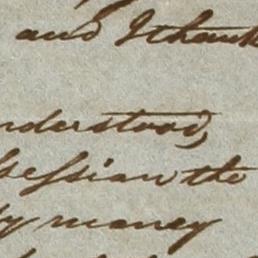 and I thank
nderstood,
session the
y money